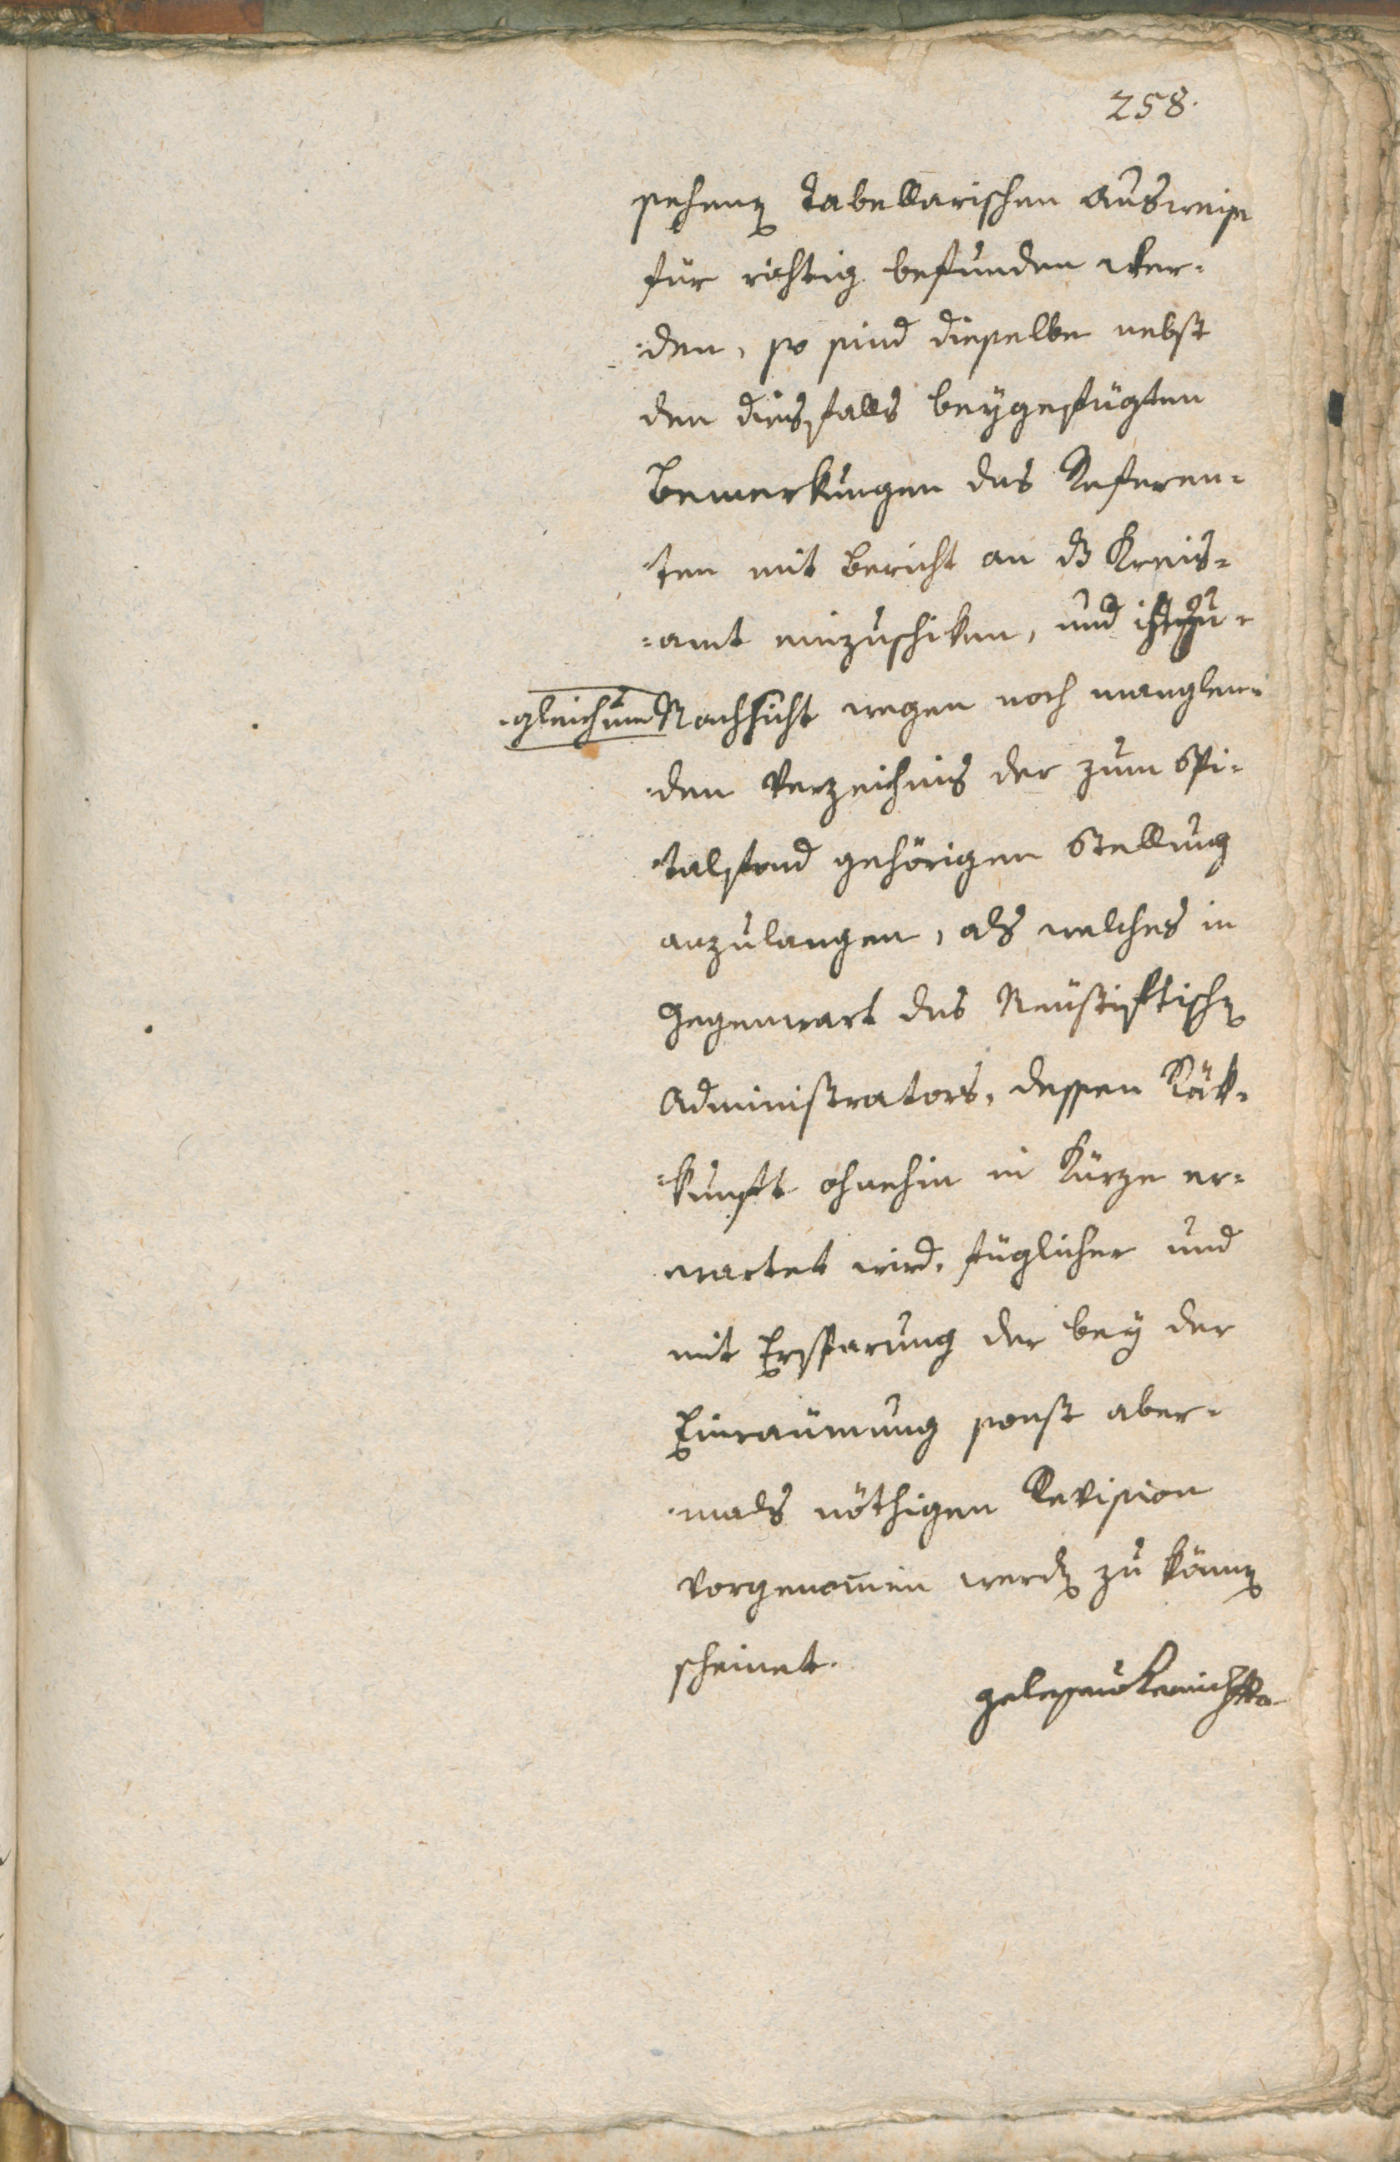 258.
sehenen tabellarischen Ausweise
für richtig befunden wer-
den, so sind dieselbe nebst
den diesfalls beygefügten
Bemerkungen des Referen-
ten mit Bericht an das Kreis-
=amt einzuschiken, und zu-
gleich um Nachsicht wegen noch manglen-
den Verzeichnis der zum Spi-
talfond gehörigen Stellung
anzulangen, als welches in
Gegenwart des Neustiftischen
Administrators, dessen Rük-
=kunft ohnehin in Kürze er-
wartet wird, füglicher und
mit Ersparung der bey der
Einraumung sonst aber-
mals nöthigen Revision
vorgenommen werden zu können
scheinet.
gelesen